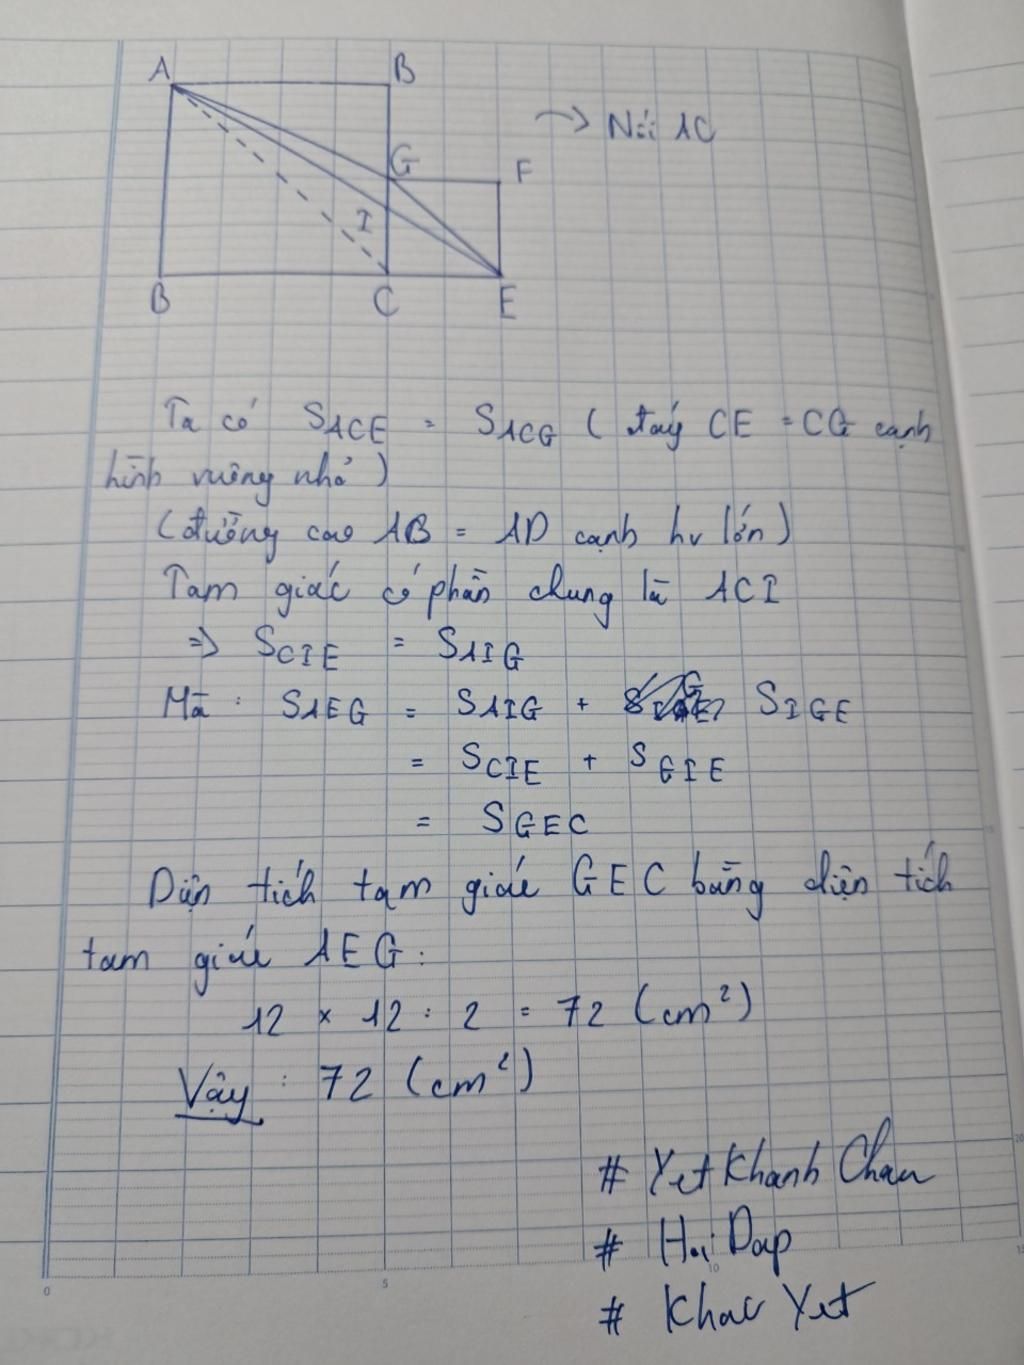 A B
→ Nối AC
G F
I
B C E
Ta có SACE = SACG ( đáy CE = CG cạnh
hình vuông nhỏ )
( đường cao AB = AD cạnh hv lớn )
Tam giác có phần chung là ACI
=> SCIE = SAIG
Mà : SAEG = SAIG + SIGE
= SCIE + SGIE
= SGEC
Diện tích tam giác GEC bằng diện tích
tam giác AEG :
12 x 12 : 2 = 72 (cm²)
Vậy : 72 (cm²)
# YetKhanhChau
# HoiDap
# KhacYet
0 5 10 15
20